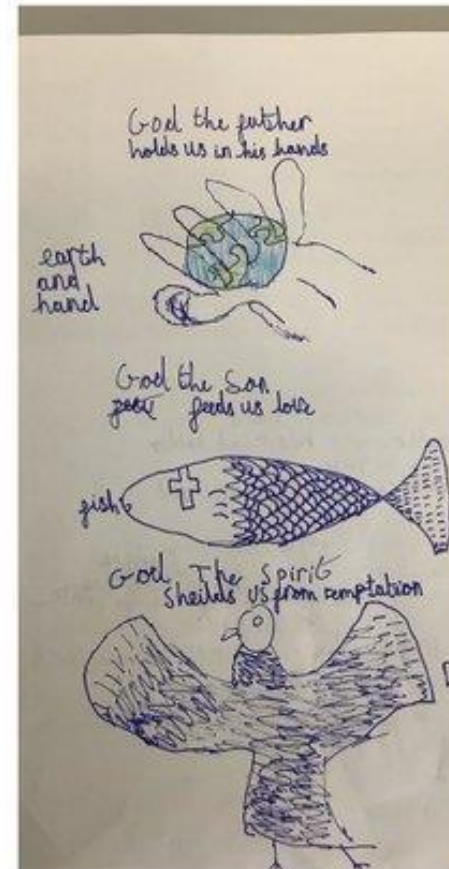 God the futher
holds us in his hands
earth
and
hand
God the Son
feeds us love
fish
God The Spirit
sheilds us from temptation